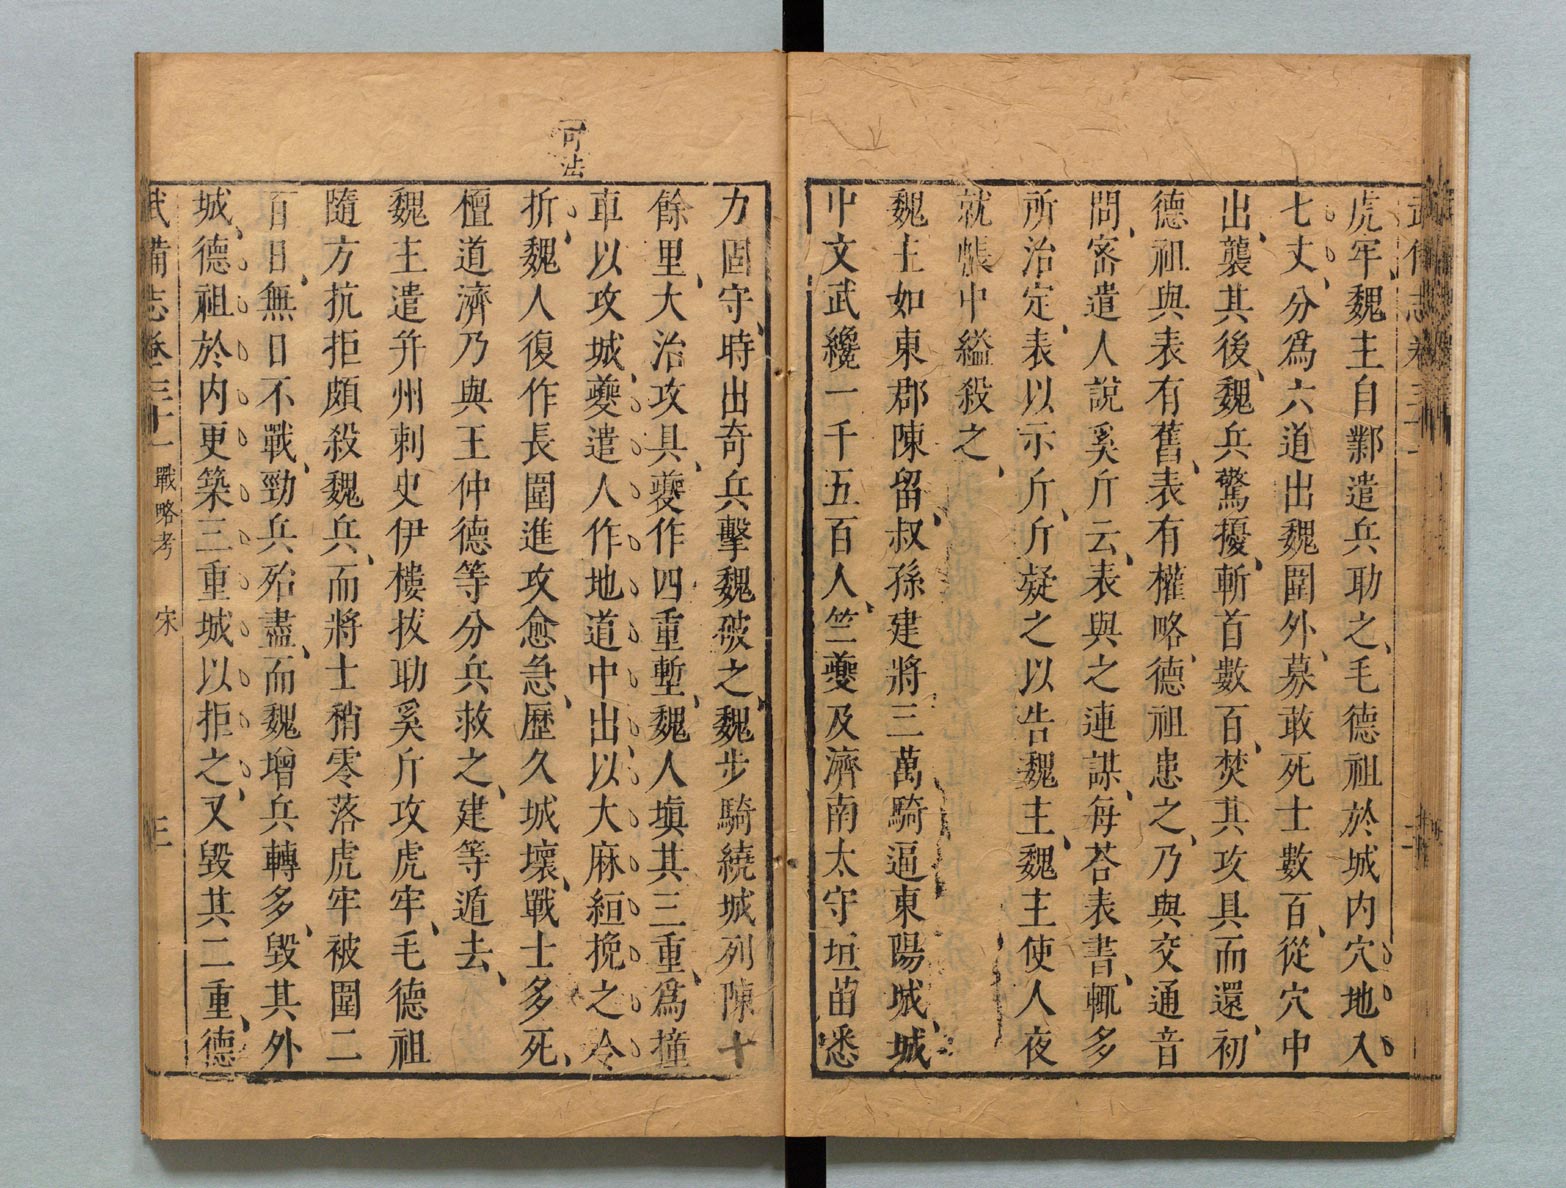 武備志卷三十一
虎牢魏主自鄴遣兵助之毛德祖於城内穴地入
七丈分爲六道出魏圍外募敢死士數百從穴中
出襲其後魏兵驚擾斬首數百焚其攻具而還初
德祖與表有舊表有權略德祖患之乃與交通音
問密遣人說奚斤云表與之連謀每荅表書輒多
所治定表以示斤斤疑之以告魏主魏主使人夜
就帳中縊殺之
魏主如東郡陳留叔孫建將三萬騎逼東陽城城
中文武纔一千五百人竺夔及濟南太守垣苗悉
可法
力固守時出奇兵擊魏破之魏步騎繞城列陳十
餘里大治攻具夔作四重塹魏人塡其三重爲撞
車以攻城夔遣人作地道中出以大麻絙挽之令
折魏人復作長圍進攻愈急歷久城壞戰士多死
檀道濟乃與王仲德等分兵救之建等遁去
魏主遣并州刺史伊樓拔助奚斤攻虎牢毛德祖
隨方抗拒頗殺魏兵而將士稍零落虎牢被圍二
百日無日不戰勁兵殆盡而魏增兵轉多毀其外
城德祖於内更築三重城以拒之又毀其二重德
武備志卷三十一 戰略考 宋 三